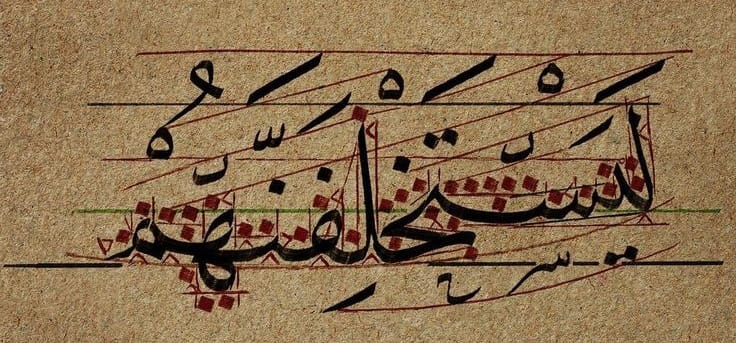 لَيَسْتَخْلِفَنَّهُمْ